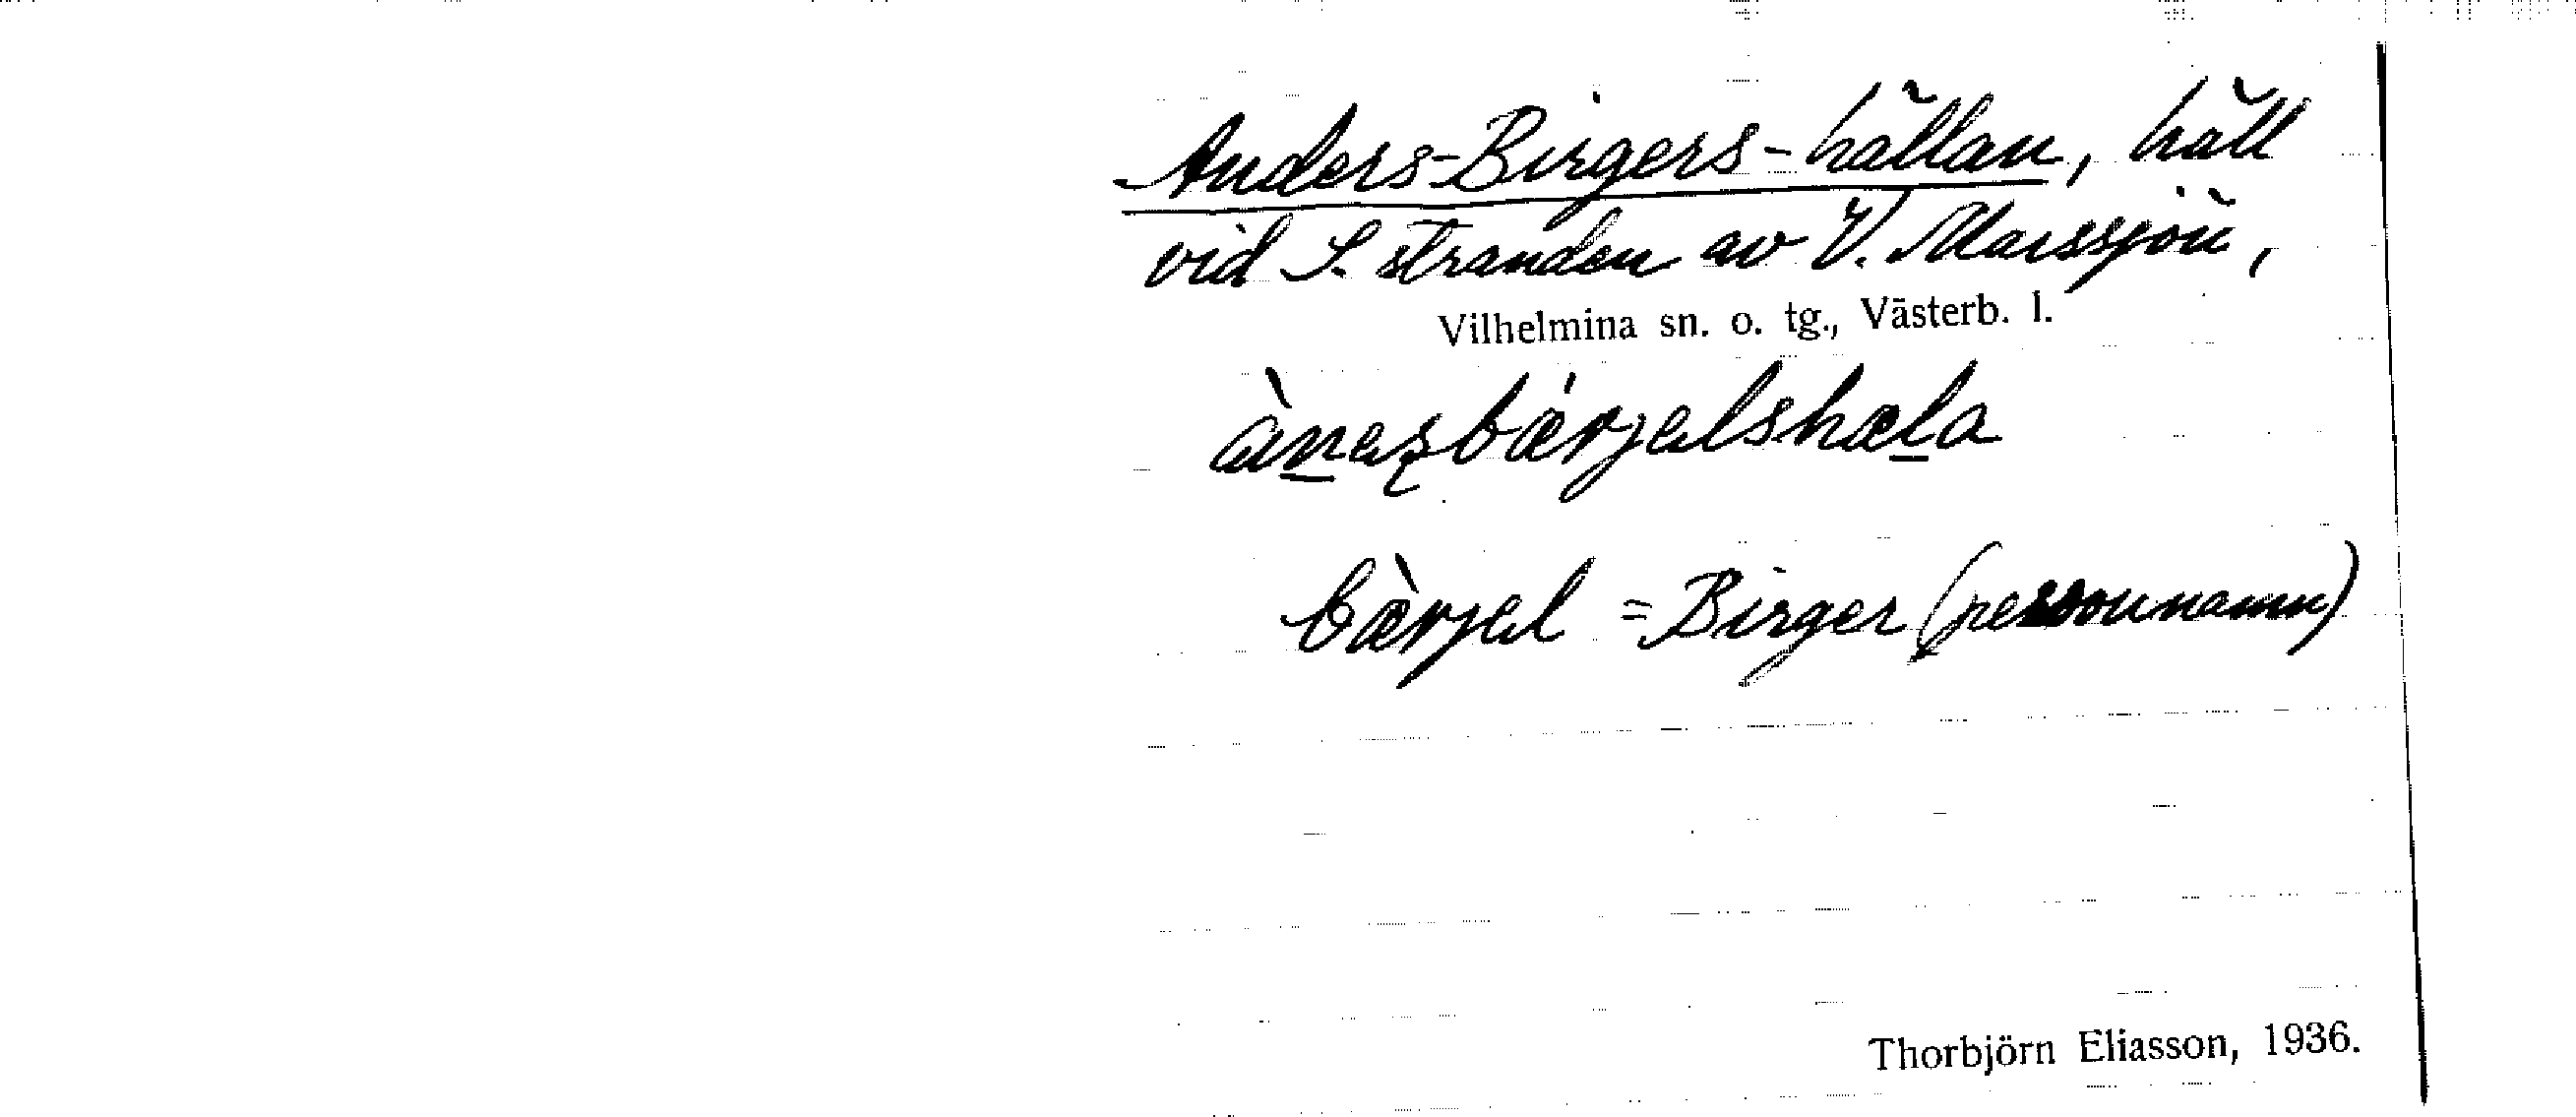 Anders-Birgers-hällan, häll
vid S. stranden av V. Marssjön,
Vilhelmina sn. o. tg., Västerb. l.
ànes̨bǽrjelshæla
bæ̀rjel = Birger (personnamn)
Thorbjörn Eliasson, 1936.